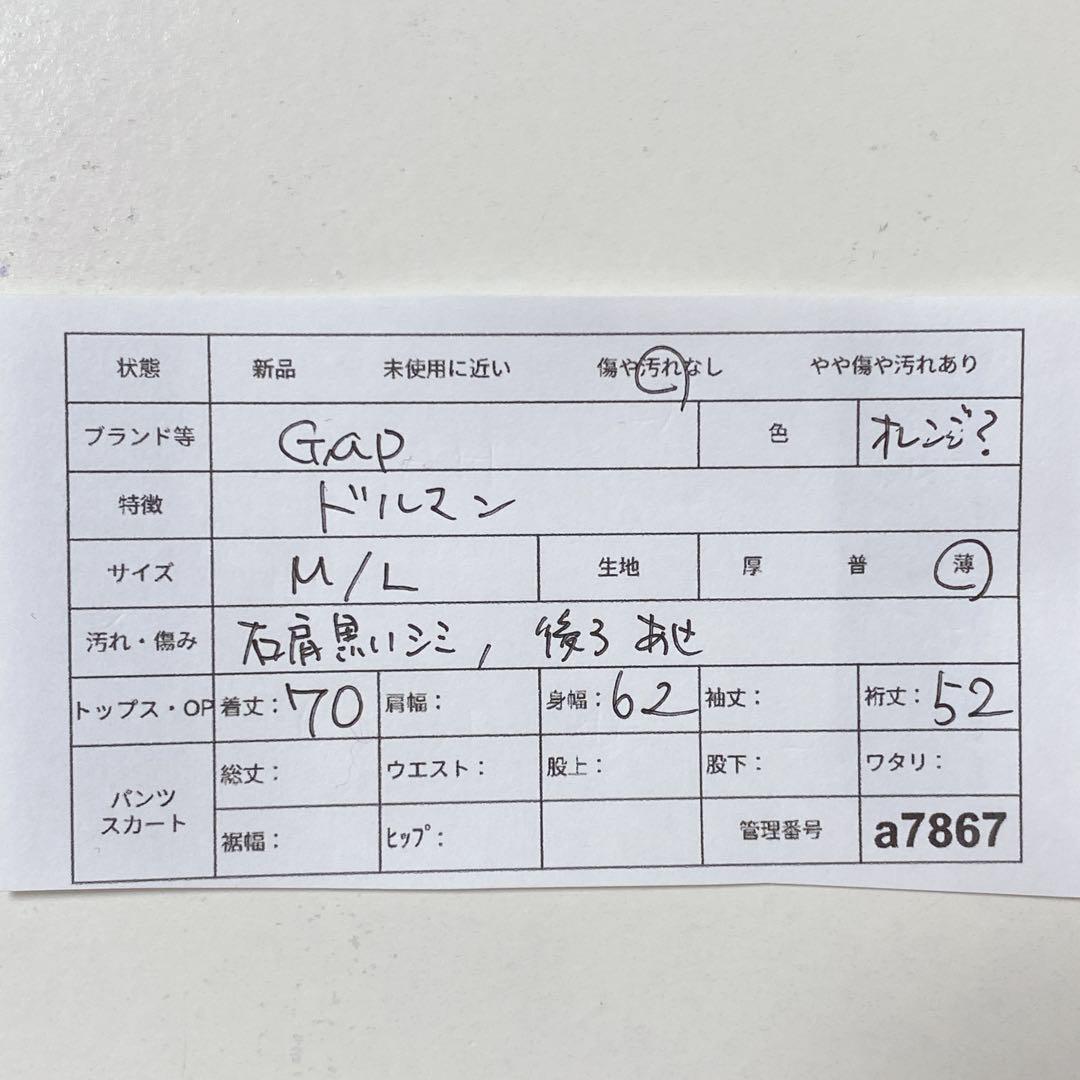 状態 新品 未使用に近い 傷や汚れなし やや傷や汚れあり
ブランド等 Gap 色 オレンジ?
特徴 ドルマン
サイズ M/L 生地 厚 普 薄
汚れ・傷み 右肩黒いシミ, 後ろあせ
トップス・OP 着丈:70 肩幅: 身幅:62 袖丈: 裄丈:52
パンツ スカート 総丈: ウエスト: 股上: 股下: ワタリ:
裾幅: ヒップ: 管理番号 a7867